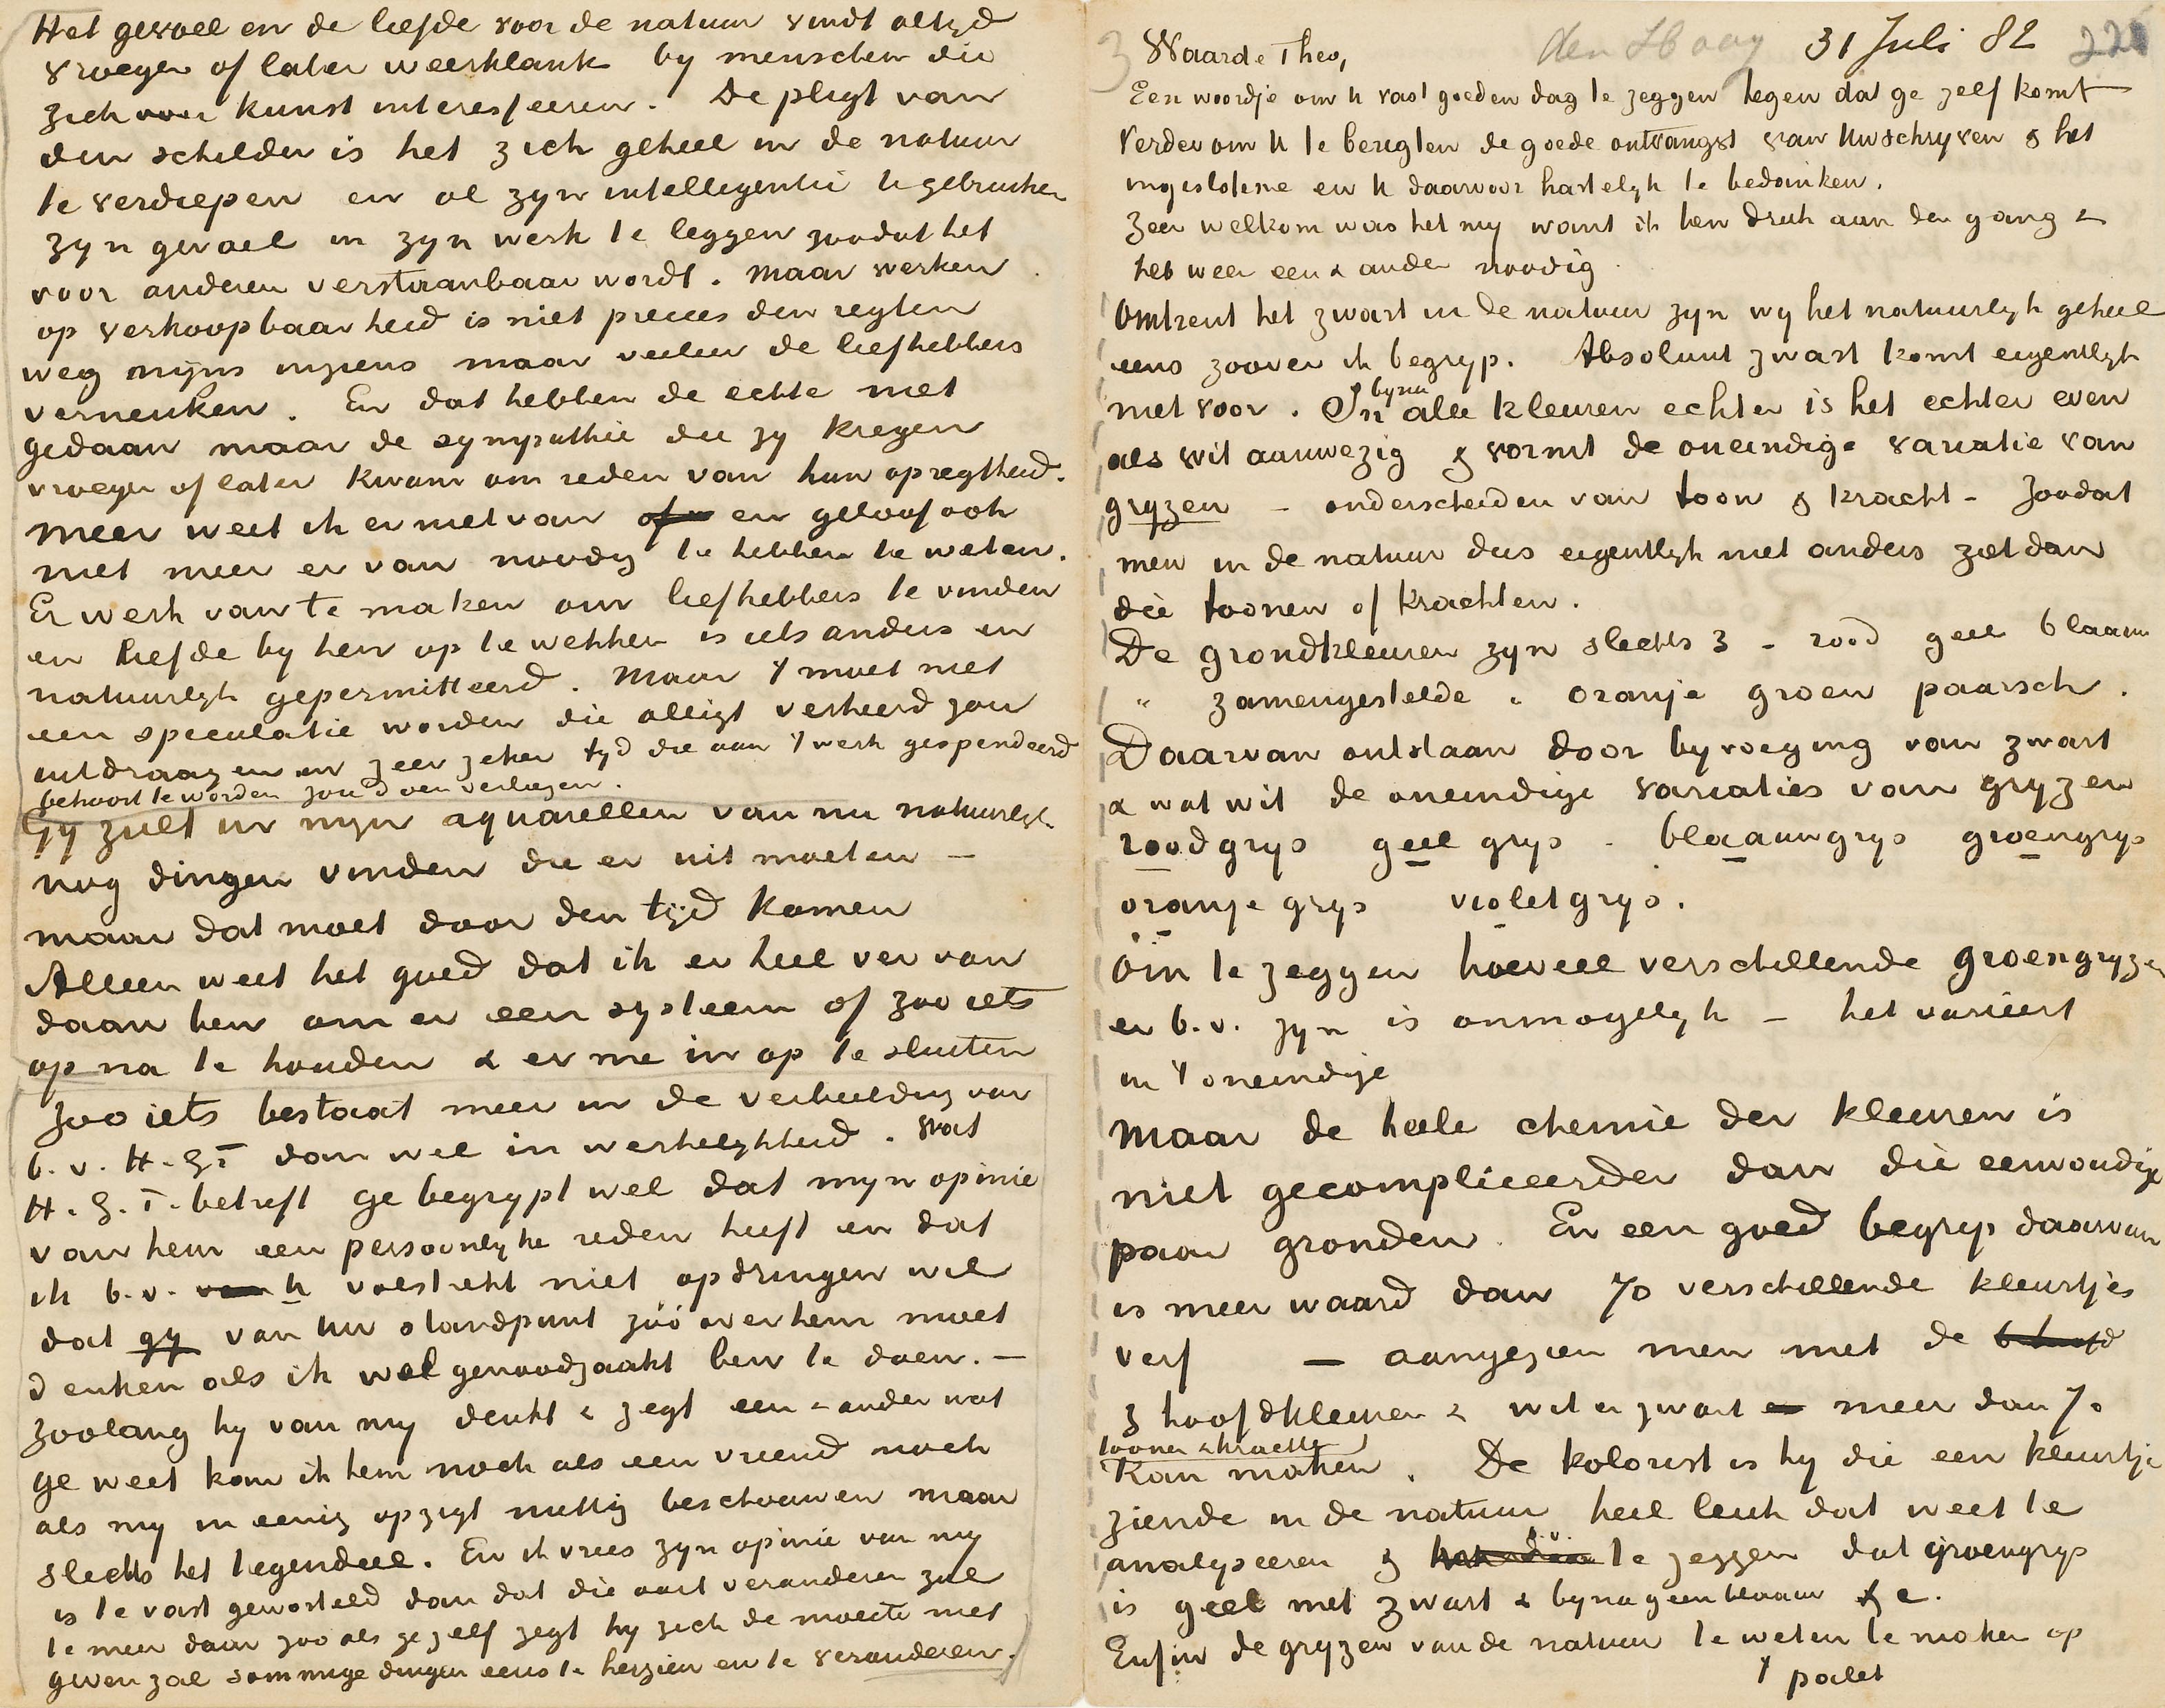 Waarde Theo,
den Haag 31 Juli 82
Een woordje om U vast goeden dag te zeggen tegen dat ge zelf komt
Verder om U te berigten de goede ontvangst van Uw schryven & het
ingeslotene en U daarvoor hartelyk te bedanken.
Zeer welkom was het my want ik ben druk aan den gang &
heb weer een & ander noodig.
Omtrent het zwart in de natuur zyn wy het natuurlyk geheel
eens zoover ik begryp. Absoluut zwart komt eigentlyk
niet voor. In byna alle kleuren echter is het echter even
als wit aanwezig & vormt de oneindige variatie van
gryzen – onderscheiden van toon & kracht – zoodat
men in de natuur dus eigentlyk niet anders ziet dan
die toonen of krachten.
De grondkleuren zyn slechts 3 – rood geel blaauw
" zamengestelde " oranje groen paarsch.
Daarvan ontstaan door byvoeging van zwart
& wat wit de oneindige variaties van gryzen
roodgrys geelgrys – blaauwgrys groengrys
oranjegrys violetgrys.
Om te zeggen hoeveel verschillende groengryzen
er b.v. zyn is onmogelyk – het varieert
in 't oneindige
Maar de heele chemie der kleuren is
niet gecompliceerder dan die eenvoudige
paar gronden. En een goed begrip daarvan
is meer waard dan 70 verschillende kleurtjes
verf – aangezien men met de
3 hoofdkleuren & wit en zwart meer dan 70
toonen & krachten
kan maken. De kolorist is hy die een kleurtje
ziende in de natuur heel leuk dat weet te
analyseeren & b.v. te zeggen dat groengrys
is geel met zwart & byna geen blaauw &c.
Enfin de gryzen van de natuur te weten te maken op
't palet
Het gevoel en de liefde voor de natuur vindt altyd
vroeger of later weerklank by menschen die
zich voor kunst interesseeren. De pligt van
den schilder is het zich geheel in de natuur
te verdiepen en al zyn intelligentie te gebruiken
zyn gevoel in zyn werk te leggen zoodat het
voor anderen verstaanbaar wordt. Maar werken
op verkoopbaarheid is niet precies den regten
weg mijns inziens maar veeleer de liefhebbers
verneuken. En dat hebben de echte niet
gedaan maar de sympathie die zy kregen
vroeger of later kwam om reden van hun opregtheid.
Meer weet ik er niet van en geloof ook
niet meer er van noodig te hebben te weten.
Er werk van te maken om liefhebbers te vinden
en liefde by hen op te wekken is iets anders en
natuurlyk gepermitteerd. Maar 't moet niet
een speculatie worden die alligt verkeerd zou
uitdraagen en zeer zeker tyd die aan 't werk gespendeerd
behoort te worden zou doen verliezen.
Gy zult in myn aquarellen van nu natuurlyk
nog dingen vinden die er uit moeten –
maar dat moet door den tijd komen
Alleen weet het goed dat ik er heel ver van
daan ben om er een systeem of zoo iets
op na te houden & er me in op te sluiten
Zoo iets bestaat meer in de verbeelding van
b.v. H.G.T dan wel in werkelykheid. Wat
H.G.T. betreft ge begrypt wel dat myn opinie
van hem een persoonlyke reden heeft en dat
ik b.v. U volstrekt niet opdringen wil
dat gy van Uw standpunt zóó over hem moet
denken als ik wel genoodzaakt ben te doen. –
Zoolang hy van my denkt & zegt een & ander wat
ge weet kan ik hem noch als een vriend noch
als my in eenig opzigt nuttig beschouwen maar
slechts het tegendeel. En ik vrees zyn opinie van my
is te vast geworteld dan dat die ooit veranderen zal
te meer daar zoo als ge zelf zegt hy zich de moeite niet
geven zal sommige dingen eens te herzien en te veranderen.